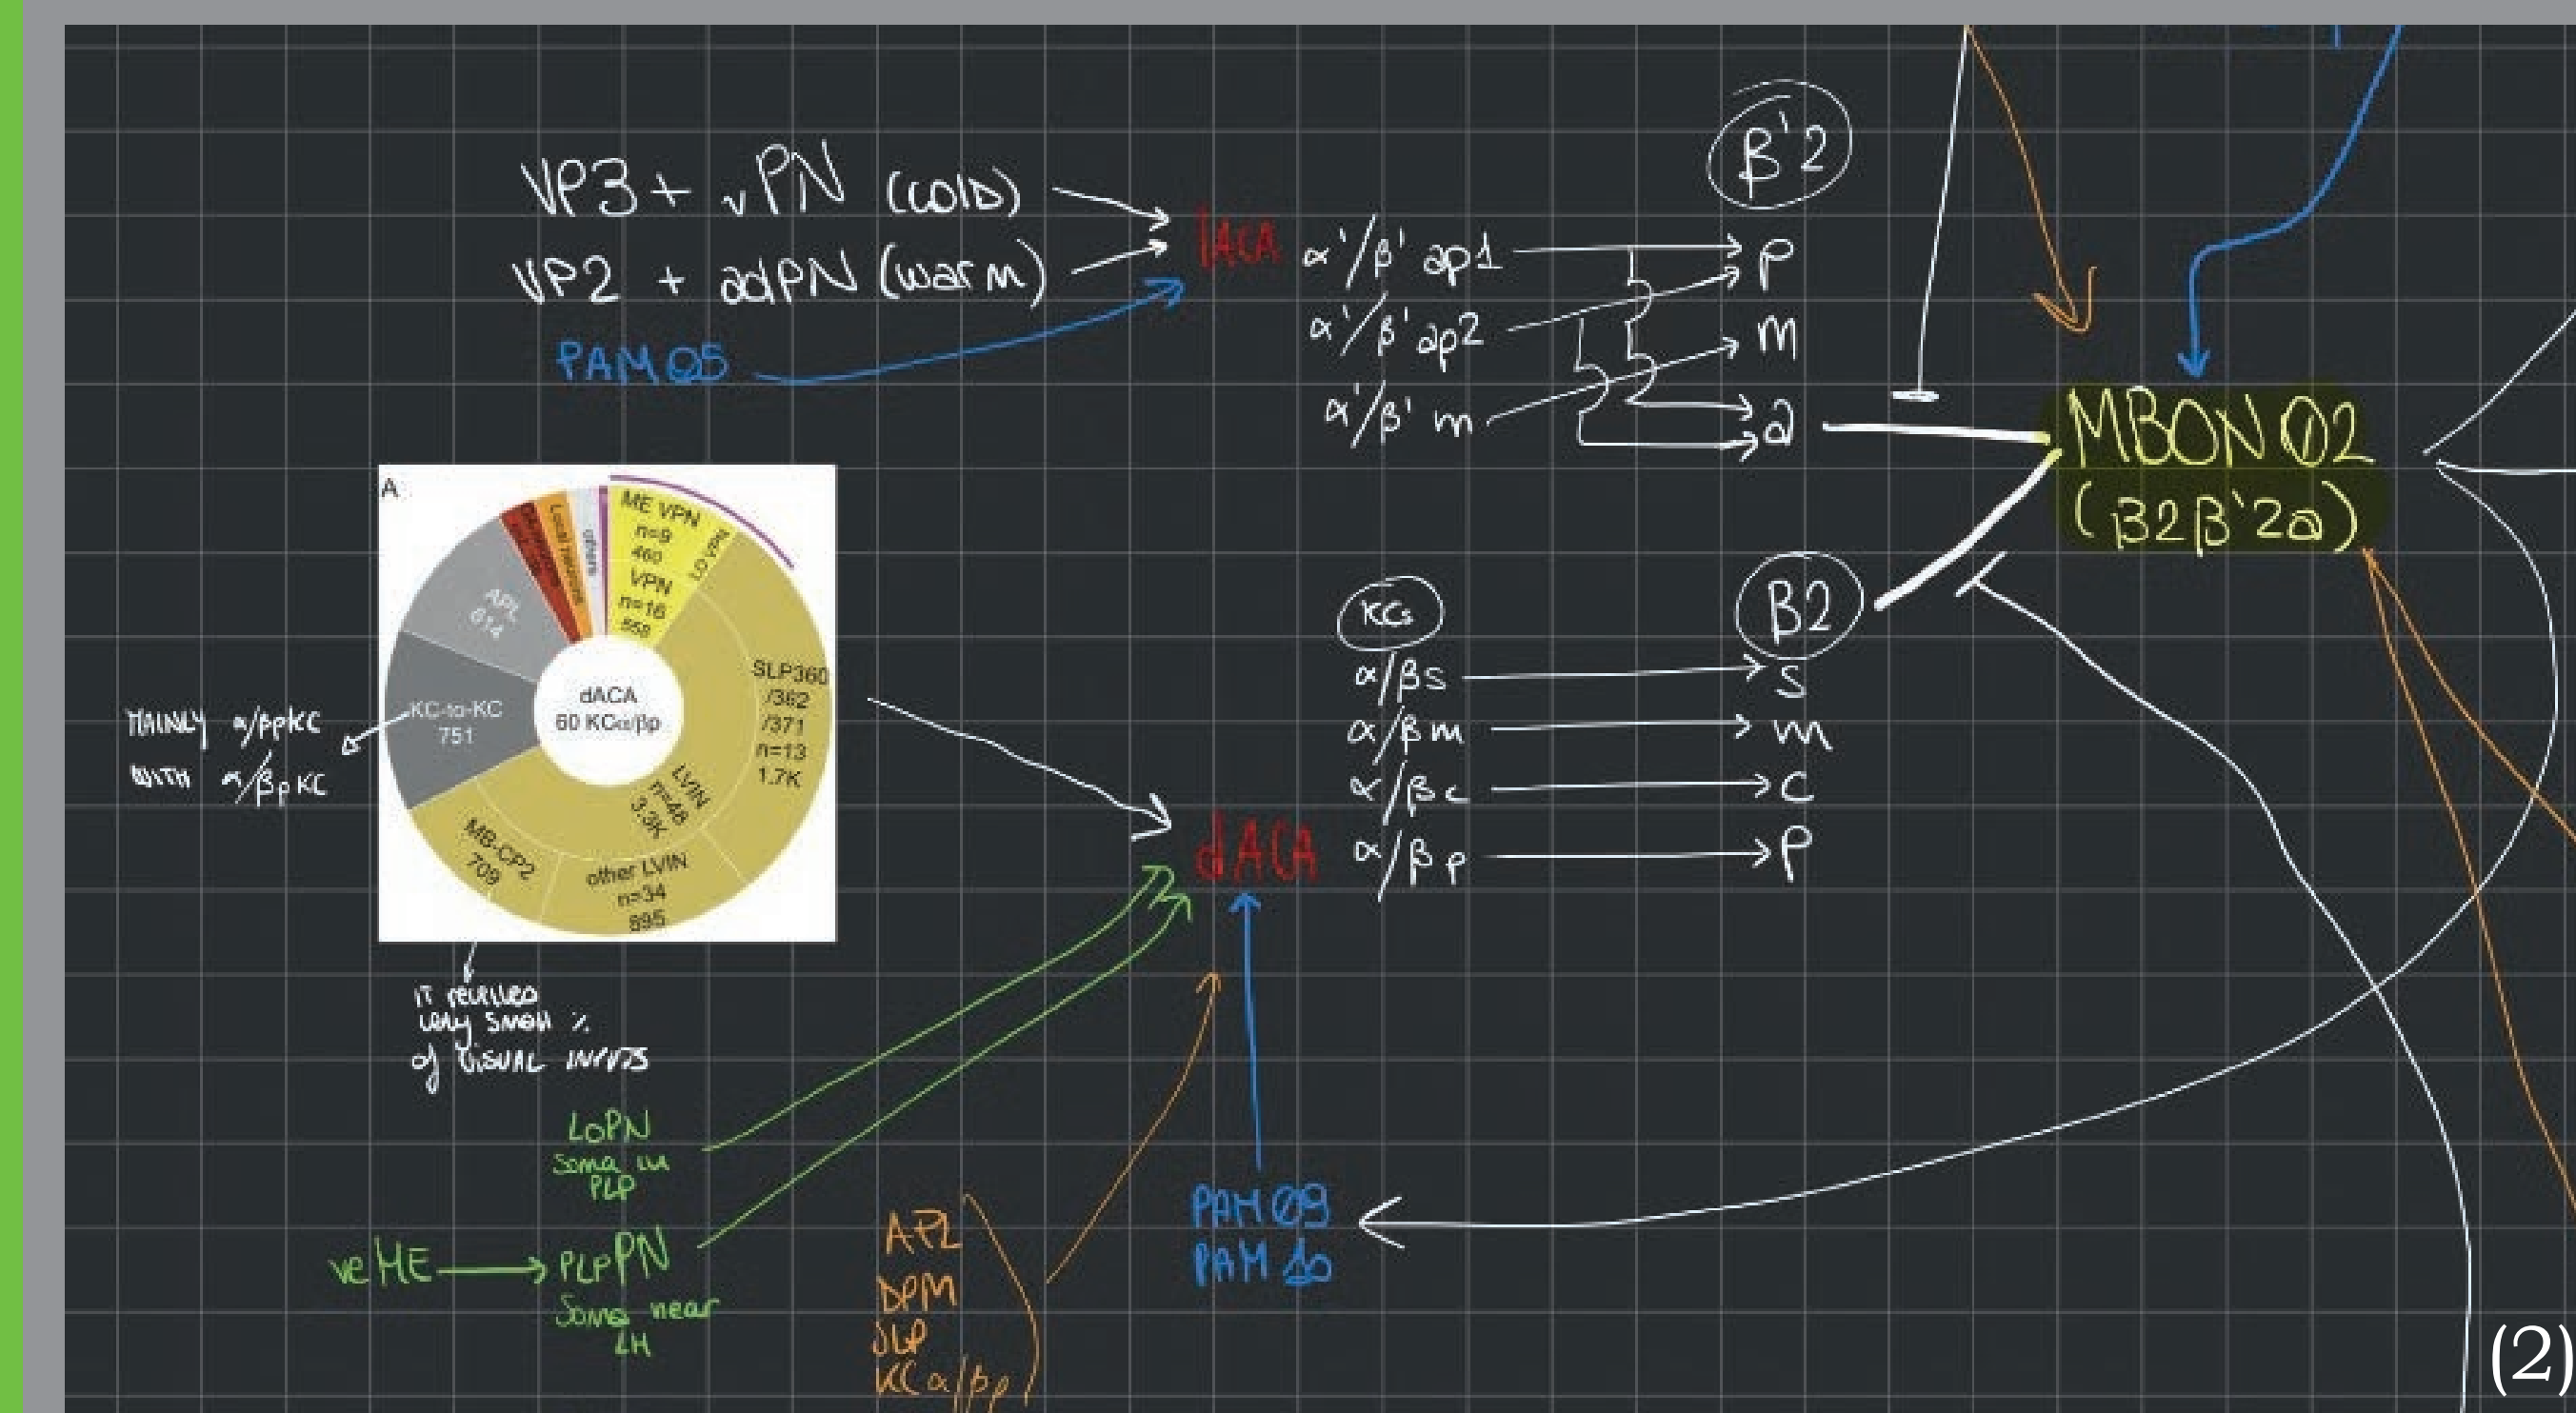 β'2
VP3 + vPN (COLD)
VP2 + adPN (warm)
PAM 05
lACA
α'/β' ap1
α'/β' ap2
α'/β' m
p
m
a
MBON 02
(β2β'2a)
A
ME VPN
n=9
460
VPN
n=16
LO VPN
Local neurons
others
APL
614
KC-to-KC
751
dACA
60 KCα/βp
SLP360
/362
/371
n=13
1.7K
LVIN
n=48
3.3K
MB-CP2
709
other LVIN
n=34
895
MAINLY α/βpKC
WITH α/βpKC
IT
very small %
of VISUAL
KCs
β2
α/βs
α/βm
α/βc
α/βp
s
m
c
p
dACA
LoPN
Soma in
PLP
veME
PLPPN
Soma near
LH
APL
DPM
SLP
KCα/βp
PAM 09
PAM 10
(2)